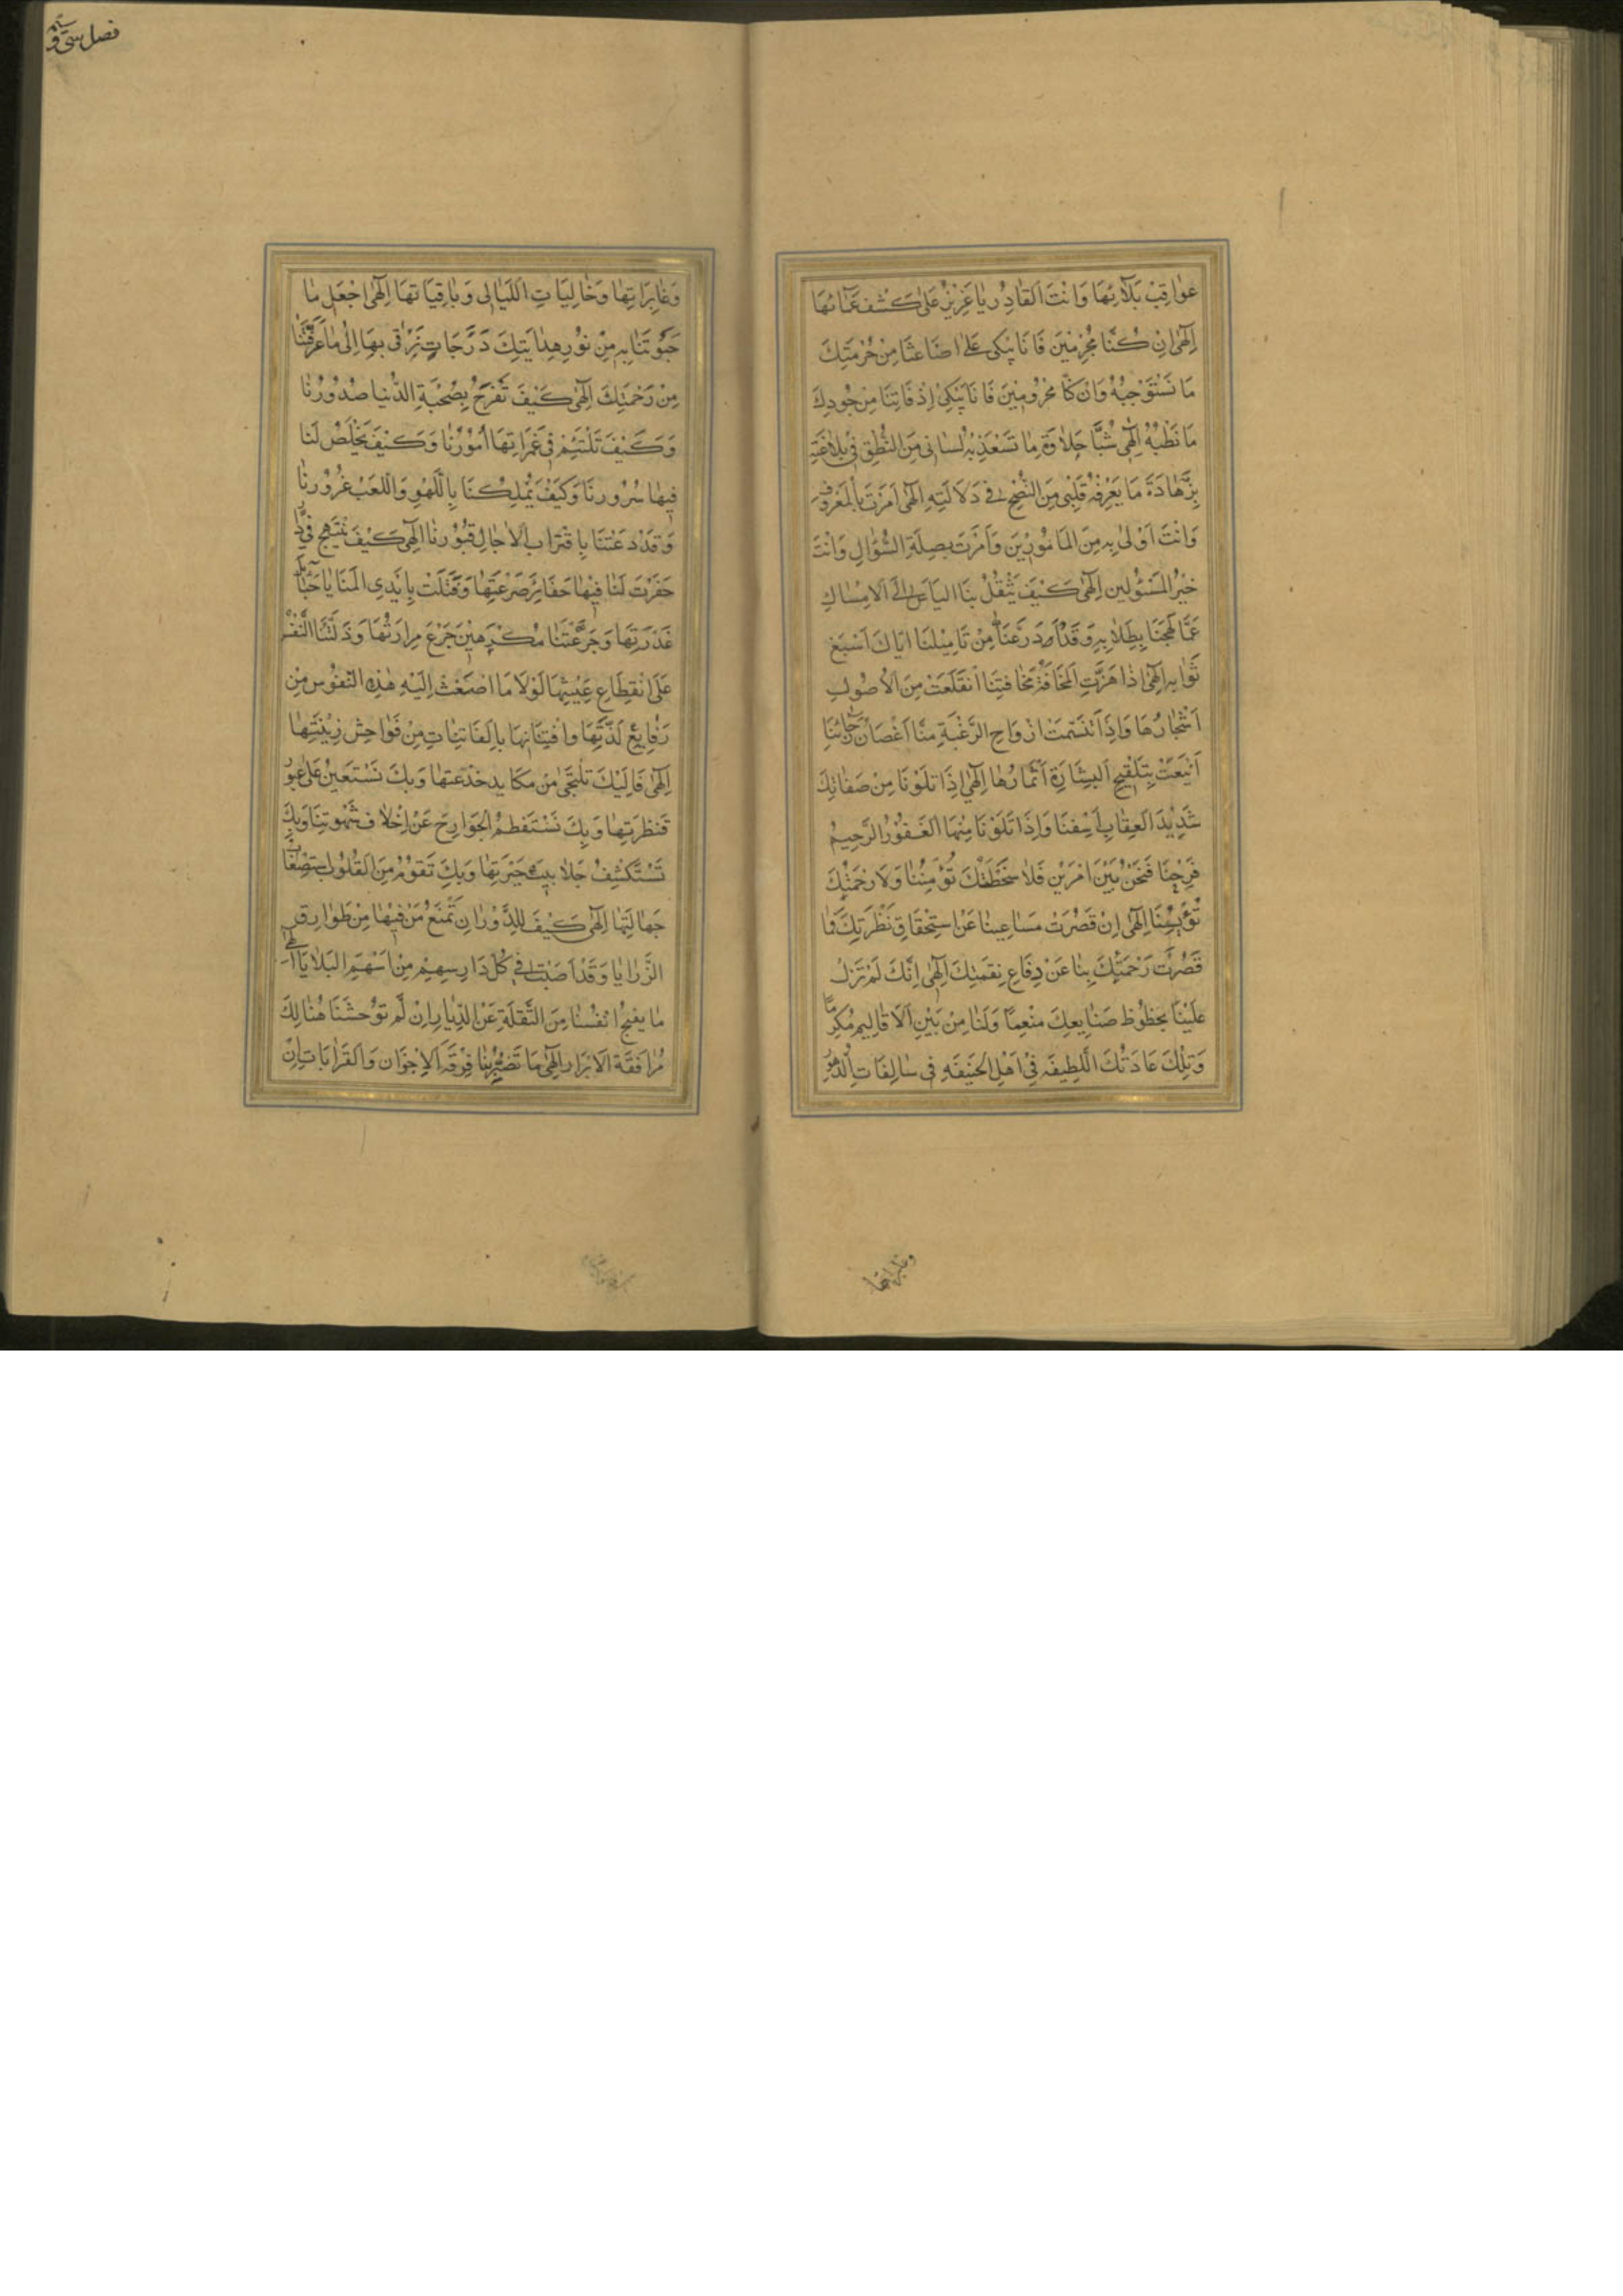 عَواقِبْ بَلآئِهَا وَاَنْتَ القَادِرُ يٰا عَزِيْزُ عَلىٰ كَشْفِ غَمّآئهَا
اِلٰهى اِنْ كُنَّا مُجْرِمْيْنَ فَاِنَا نَبْكى عَلىٰ اضَاعَتْنَا مِنْ حُرْمَتِكَ
مَا نَسْتَوْجِبُهُ وَانْ كنّا مَحْرُومِيْنَ فَانَا نَبْكِىْ اِذْ فَاتِتَنَا مِنْ جُودِكَ
مَا نَطْلُبُهُ اِلٰهى شُبَّ حَلٰاوَة مٰا تَسْعَذِبُه لِسٰانى مِنَ النُّطْقِ فى بِلاٰغَتِهِ
بِزَّهَادَةَ مَا يَعْرِفُهُ قَلْبى مِنَ النُّصْحِ فى دَلَالَتِهِ اِلٰهى اَمَرْتَ بِالْمَعْرُوفِ
وَانْتَ اَوْلىٰ بِهِ مِنَ المَامُورِيْنَ وَاَمَرْتَ بِصِلَةِ السُّؤَالِ وَاَنْتَ
خَيْرُ المَسْئُولين اِلٰهى كَيْفَ يَنْقُلُ بِنَا اليَاَسُ اِلَى الامْسٰاكِ
عَمَّا لَهِجْنَا بِطِلٰابِهِ وَقَدْ اَدَّرَعْنَا مِنْ تَامِيْلِنَا ايّاكَ اَسْبَغَ
ثَوٰابِهِ اِلٰهى اِذٰا هَزَّتِ المَخَافَةُ مَخٰافَتِنَا اَنْقَلَعَتْ مِنَ الاُصُولِ
اَشْجٰارُهَا وَاِذَا تَنَسَّمَتْ ارْوَاحِ الرَّغْبَةِ مِنّا اَغْصَانَ رَجٰائنَا
اَيْنَعَتْ بِتَلْقِيحِ البِشَارَةِ اَثْمَارُهٰا اِلٰهى اِذَا تَلَوْنَا مِنْ صِفٰاتِكَ
شَدِيْدَ العِقٰابِ اَسِفْنَا وَاِذَا تَلَوْنَا مِنْهَا الغَفُورُ الرَّحِيمُ
فَرِحْنَا فَنَحْنُ بَيْنَ اَمْرَيْنِ فَلاٰ سَخْطَتُكَ تُؤْمِنُنٰا وَلَا رَحْمَتُكَ
تُؤْيِسُنَا اِلٰهى اِنْ قَصُرَتْ مَسٰاعِينٰا عَنْ اسْتِحْقَاقِ نَظْرَتِكَ فَمٰا
قَصُرَتْ رَحْمَتُكَ بِنٰا عَنْ دِفٰاعِ نِقْمَتِكَ اِلٰهى اِنَّكَ لَمْ تَزَلْ
عَلَيْنٰا بِحَظُوظِ صَنٰايعِكَ مُنْعِماً وَلَنٰا مِنْ بَيْنِ الاَقٰاليمِ مُكْرِماً
وَتِلْكَ عَادَتُكَ اللَّطِيفَه فِىْ اَهْلِ الحَنِيفَه فى سٰالِفَاتِ الدُّهُورِ
وغابراتها
فصل سى و
وَغٰابِرَاتِهٰا وَخٰالِيَاتِ اللَّيٰالِى وَبٰاقِيَاتِهَا اِلٰهى اجْعَلْ مٰا
حَبَوْتَنٰا بِهِ مِنْ نُوْرِ هِدٰايَتِكَ دَرَجَاتٍ نَرْقى بِهَا اِلىٰ مٰا عَرَّفْتَنٰا
مِنْ رَحْمَتِكَ اِلٰهى كَيْفَ تَفْرَحُ بِصُحْبَةِ الدُّنْيٰا صُدُورُنٰا
وَكَيْفَ تَلْتَئِمُ فى غَمَرَاتِهَا اُمُوْرُنٰا وَكَيْفَ يَخْلُصُ لَنا
فِيهٰا سُرُورنَا وَكَيْفَ يَمْلِكُنَا بِاللَّهْوِ وَاللَّعْبِ غُرُورنٰا
وَقَدْ دَعَتْنَا بِاقْتَرٰابِ الاٰجٰالِ قُبُوْرنٰا اِلٰهى كَيْفَ نَبْتَهِجُ فى دٰارٍ
حَفَرْت لَنٰا فِيْهٰا حَفَائرَ صَرْعَتِهٰا وَفَتَلَتْ بِاَيْدِى المَنَايٰا حَبٰائِلَ
غَدْرَتِهٰا وَجَرَّعَتْنَا مُكْرَهيْنَ جَرْعَ مِرارَتِهَا وَدَلَّتْنَا النَّفْسُ
عَلَى انْقِطَاعِ عَيْشِهَا لَوْلَا مَا اصْغَتْ اِلَيْهِ هٰذِهِ النّفُوْس مِنْ
رَفٰايِعِ لَذَّتِهَا وَافْتِتَانِهَا بِالفَانِيَاتِ مِنْ فَوٰاحِشِ زِيْنَتِهٰا
اِلٰهى فَاِلَيْكَ نَلْتَجِى مِنْ مَكَايِد خُدْعَتِهٰا وَبِكَ نَسْتَعينُ عَلىٰ عُبُوْرِ
قَنطَرَتِهٰا وَبِكَ نَسْتَفْطِمُ الجَوَارِحَ عَنْ اِخْلٰافِ شَهْوَتِنَا وَبِكَ
نَسْتَكْشِفُ جَلٰابِيبَ حَيْرَتِهٰا وَبِكَ تَقُوْمُ مِنَ القُلُوبِ اسْتِصْعٰابُ
جَهَالَتِهَا اِلٰهى كَيْفَ لِلدُّوْرِ اَنْ تَمْنَعَ مَنْ فِيْهٰا مِنْ طَوٰارِقِ
الرَّزٰايٰا وَقَدْ اَصَبْتَ فى كُلِّ دَارِ سِهِيْمٍ مِنْ اَسْهُمِ البَلٰايَا
مٰا يفجع اَنْفُسَنٰا مِنَ النُّقْلَةِ عَنْ الدِّيٰارِ اِنْ لَمْ توُحِشْنَا هُنٰالِكَ
مُرٰافَقَة الاَبْرَارِ اِلٰهى مَا تَضُرُّنٰا فِرْقَة الاِخْوَانِ وَالقَرٰابَات اِنْ